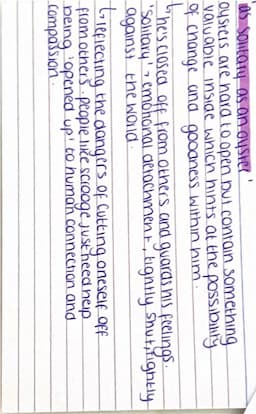 'as solitary as an oyster'
oysters are hard to open but contain something
valuable inside which hints at the possibility
of change and goodness within him.
↳ he's closed off from others and guards his feelings.
'solitary' → emotional detachment, tightly shut, tightly
against the world.
↳ reflecting the dangers of cutting oneself off
from others. people like scrooge just need help
being 'opened up' to human connection and
compassion.